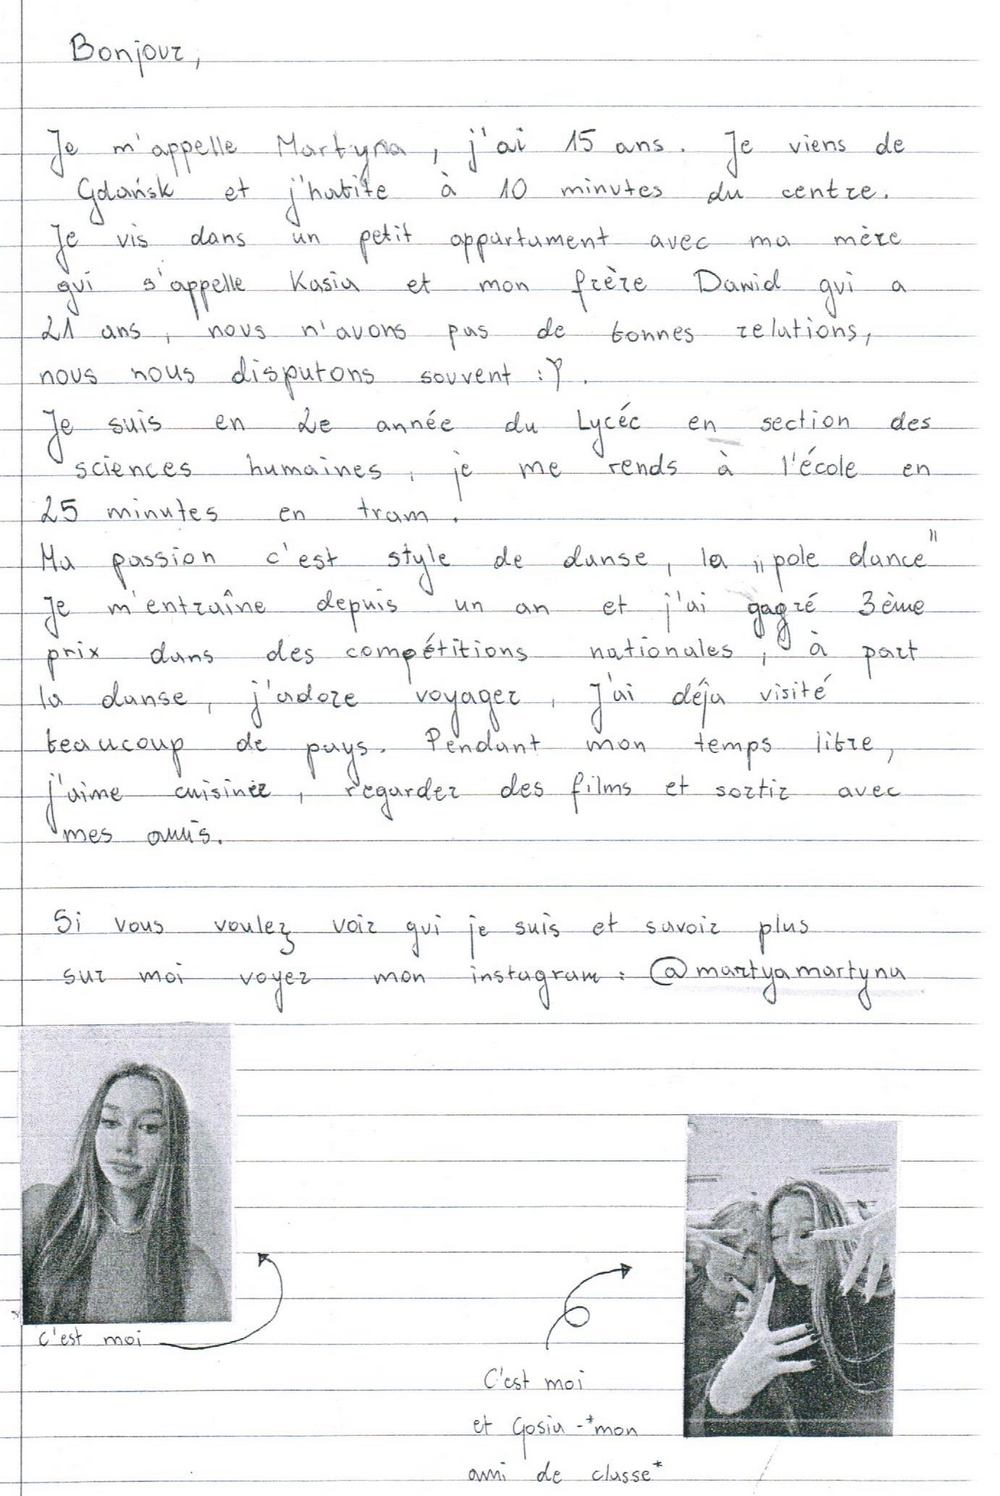 Bonjour,
Je m'appelle Martyna, j'ai 15 ans. Je viens de
Gdańsk et j'habite à 10 minutes du centre.
Je vis dans un petit appartament avec ma mère
qui s'appelle Kasia et mon frère Dawid qui a
21 ans, nous n'avons pas de bonnes relations,
nous nous disputons souvent :?.
Je suis en 2e année du Lycéc en section des
sciences humaines, je me rends à l'école en
25 minutes en tram.
Ma passion c'est style de danse, la „pole dance"
Je m'entraîne depuis un an et j'ai gagré 3ème
prix dans des compétitions nationales, à part
la danse, j'adore voyager, J'ai déja visité
beaucoup de pays. Pendant mon temps libre,
j'aime cuisiner, regarder des films et sortir avec
mes amis.
Si vous voulez voir qui je suis et savoir plus
sur moi voyez mon instagram: @martyamartyna
c'est moi
C'est moi
et Gosia -*mon
ami de classe*